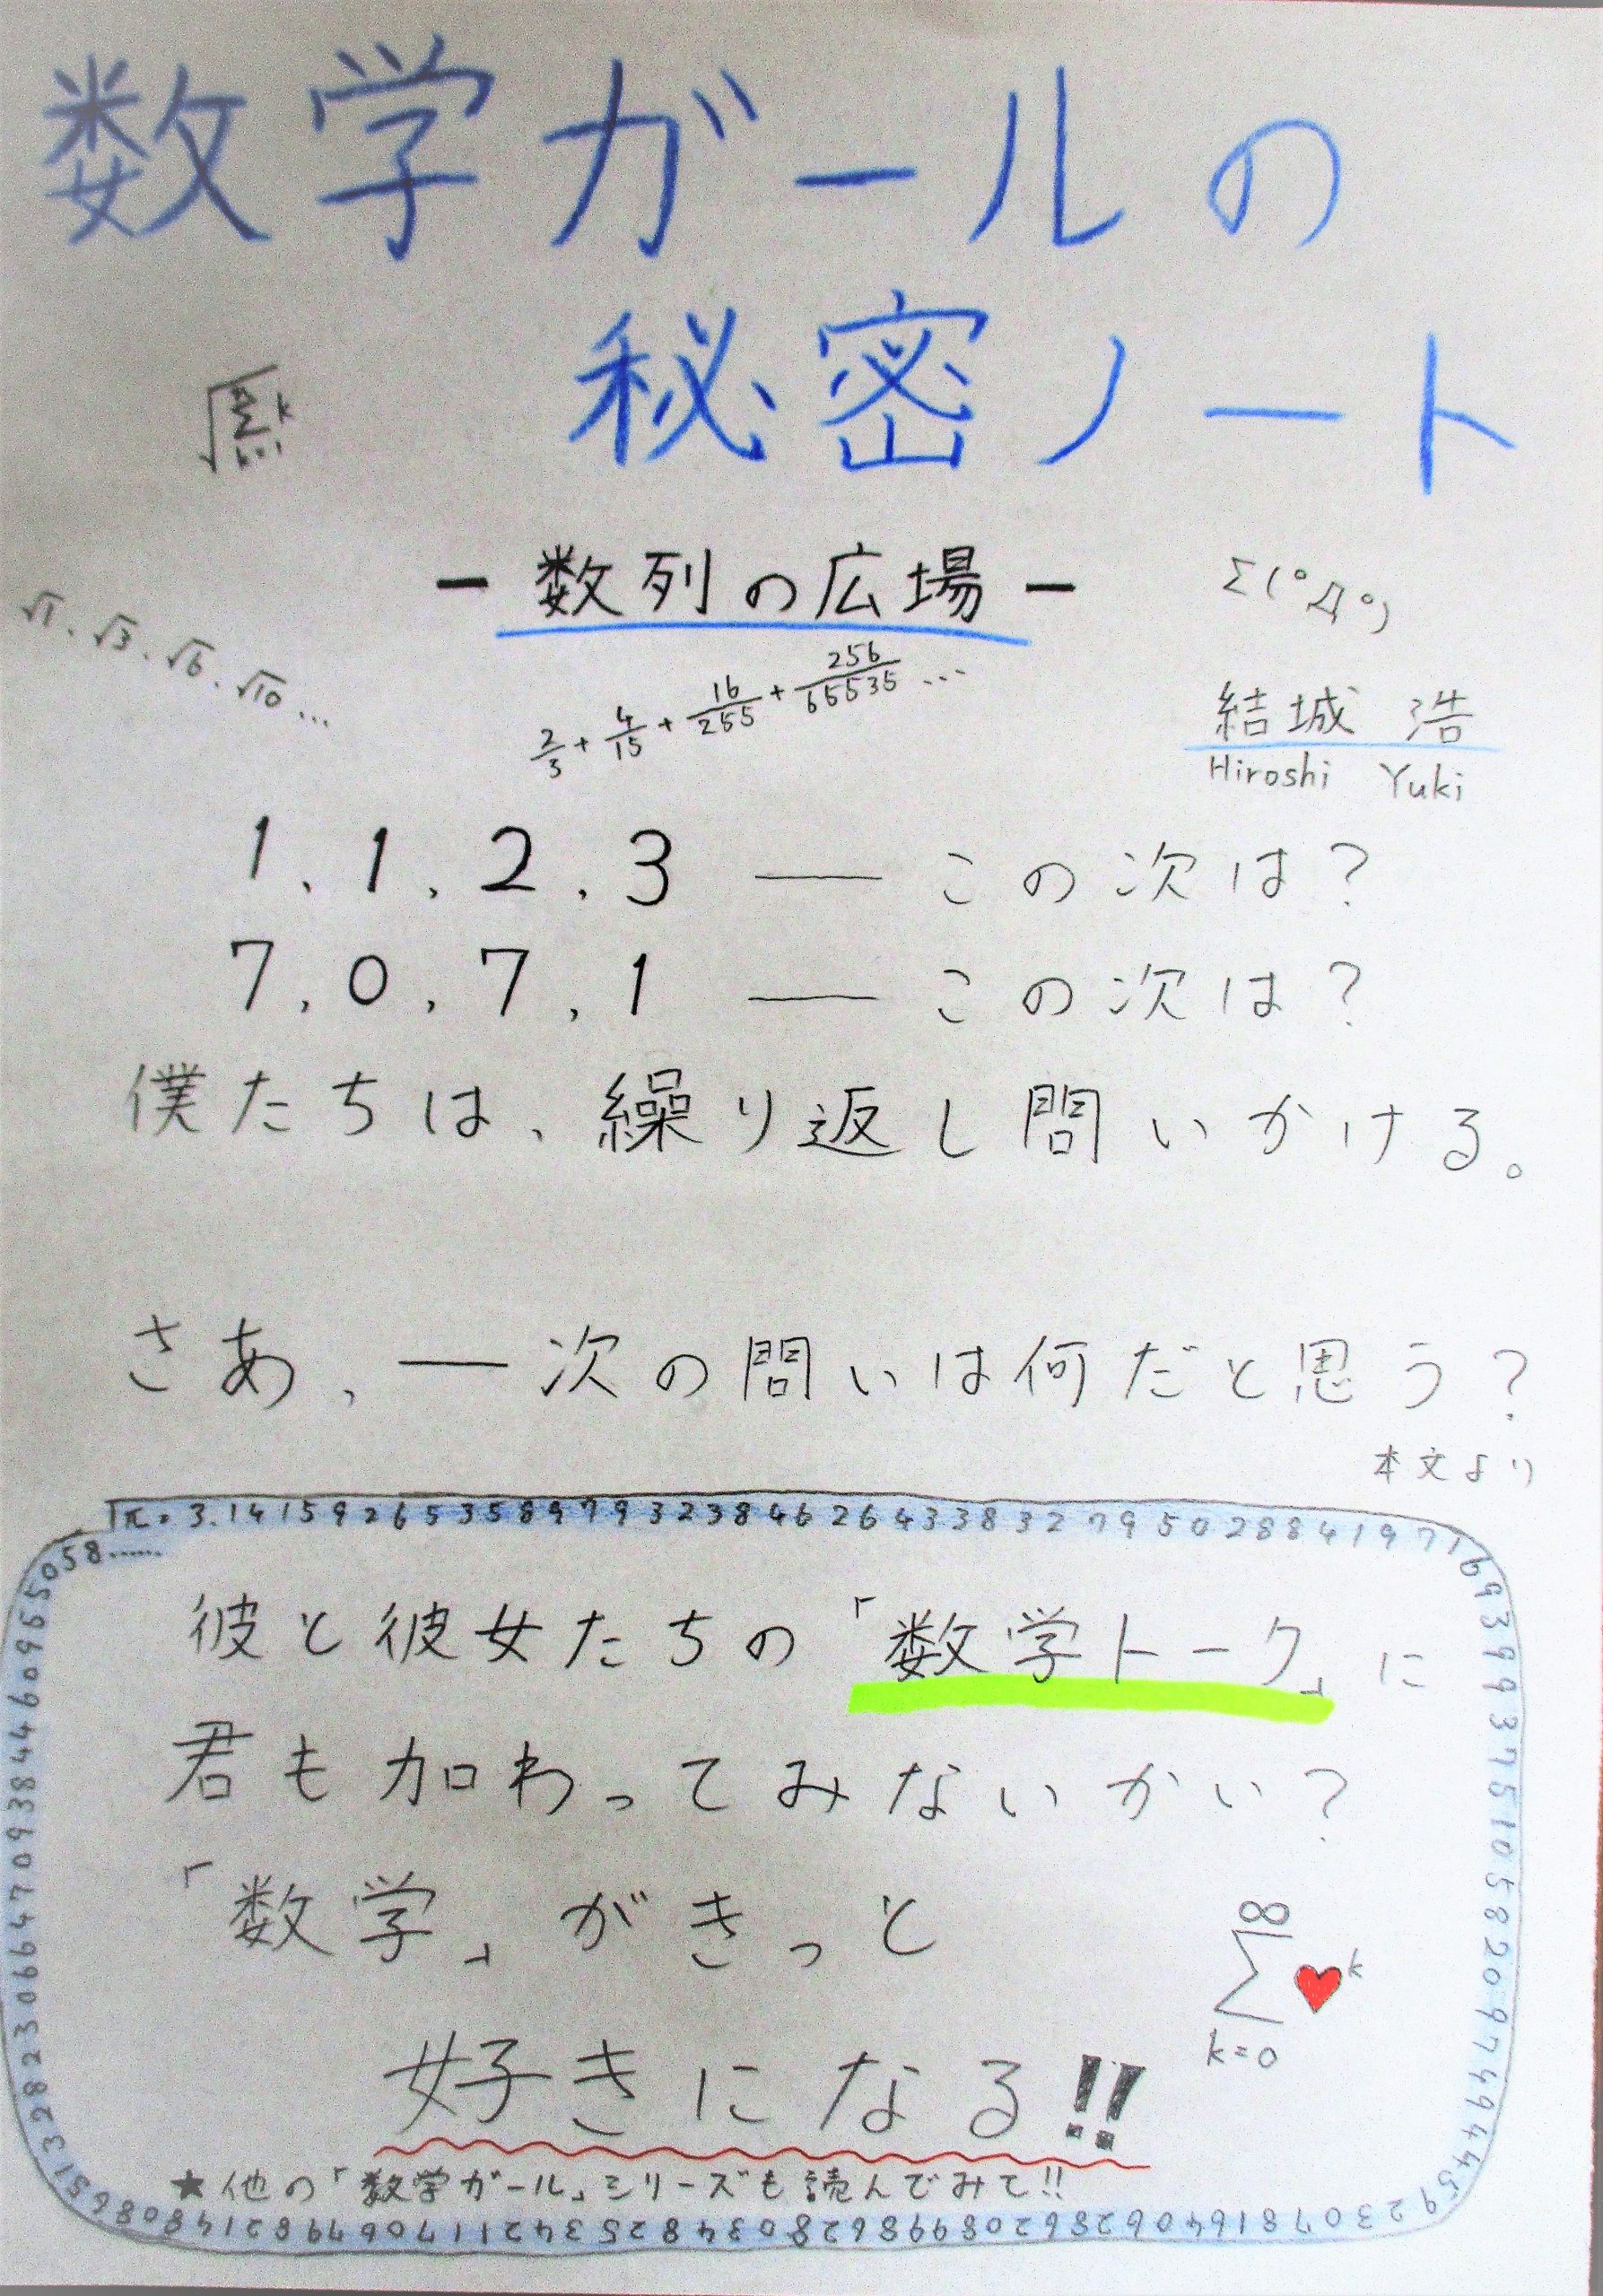 数学ガールの
秘密ノート
- 数列の広場 -
Σ(°Д°)
√1, √3, √6, √10 ...
2/3 + 4/15 + 16/255 + 256/65535 ...
結城 浩
Hiroshi Yuki
1, 1, 2, 3 ── この次は?
7, 0, 7, 1 ── この次は?
僕たちは、繰り返し問いかける。
さあ、―次の問いは何だと思う?
本文より
π = 3.14159265358979323846264338327950288419716939937510582097494459230781640628620899862803482534211706798214808651328230664709384460955058......
彼と彼女たちの「数学トーク」に
君も加わってみないかい?
「数学」がきっと
∞
Σ♥k
k=0
好きになる!!
★他の「数学ガール」シリーズも読んでみて!!